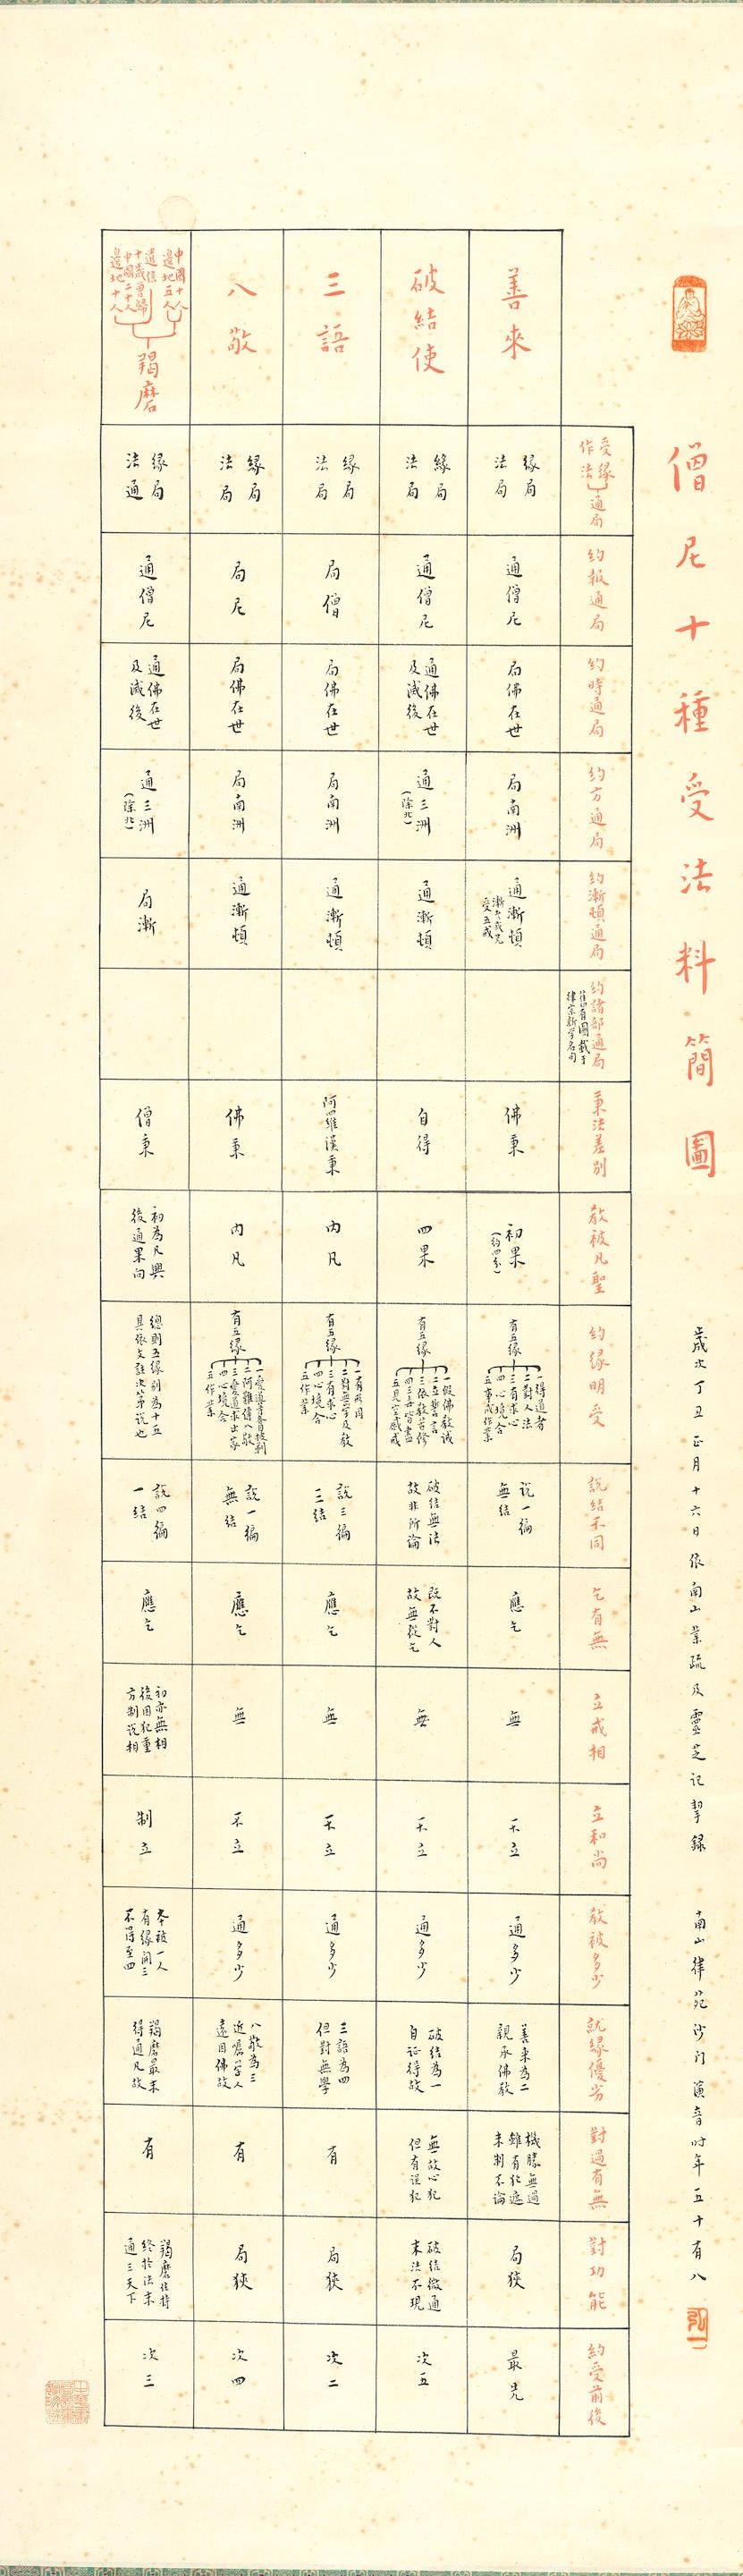 僧尼十種受法料簡圖
歲次丁丑正月十六日依南山業疏及靈芝記挈錄
南山律苑沙門演音時年五十有八
弘一
受緣
作法
通局
約報通局
約時通局
約方通局
約漸頓通局
約諸部通局
舊有圖載于
律宗新學名句
秉法差別
教被凡聖
約緣明受
說結不同
乞有無
立戒相
立和尚
教被多少
就緣優劣
對過有無
對功能
約受前後
善來
緣局
法局
通僧尼
局佛在世
局南洲
通漸頓
受五戒
佛秉
初果
(約四分)
有五緣
一得道者
二對人法
三有求心
四心境合
五事成作業
說一徧
無結
應乞
無
不立
通多少
善來為二
親承佛教
機勝無過
雖有化遮
未制不論
局狹
最先
破結使
緣局
法局
通僧尼
通佛在世
及滅後
通三洲
(除北)
通漸頓
自得
四果
有五緣
一假佛教誡
二立誓言
三依教苦修
破結無法
故非所論
既不對人
故無從乞
無
不立
通多少
破結為一
自証得故
無故心犯
但有誤犯
破結微通
末法不現
次五
三語
緣局
法局
局僧
局佛在世
局南洲
通漸頓
阿羅漢秉
內凡
有五緣
三有求心
四心境合
五作業
說三徧
三結
應乞
無
不立
通多少
三語為四
但對無學
有
局狹
次二
八敬
緣局
法局
局尼
局佛在世
局南洲
通漸頓
佛秉
內凡
有五緣
二阿難傳八敬
三愛道求出家
四心境合
五作業
說一徧
無結
應乞
無
不立
通多少
八敬為三
近從學人
遠因佛故
有
局狹
次四
中國十人
邊地五人
遣信
十歲曾歸
中國二十人
邊地十人
羯磨
緣局
法通
通僧尼
通佛在世
及滅後
通三洲
(除北)
局漸
僧秉
初為凡興
後通果向
總則五緣別為十五
具依文註次第說也
說四徧
一結
應乞
初亦無相
後因犯重
方制說相
制立
本被一人
有緣開三
不得至四
羯磨最末
得通凡故
有
羯磨住持
終於法末
通三天下
次三